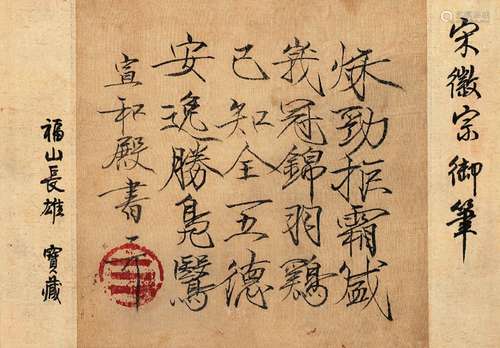 宋徽宗御筆
秌勁拒霜盛
峩冠錦羽鷄
已知全五德
安逸勝鳧鷖
宣和殿書
福山長雄 寶藏